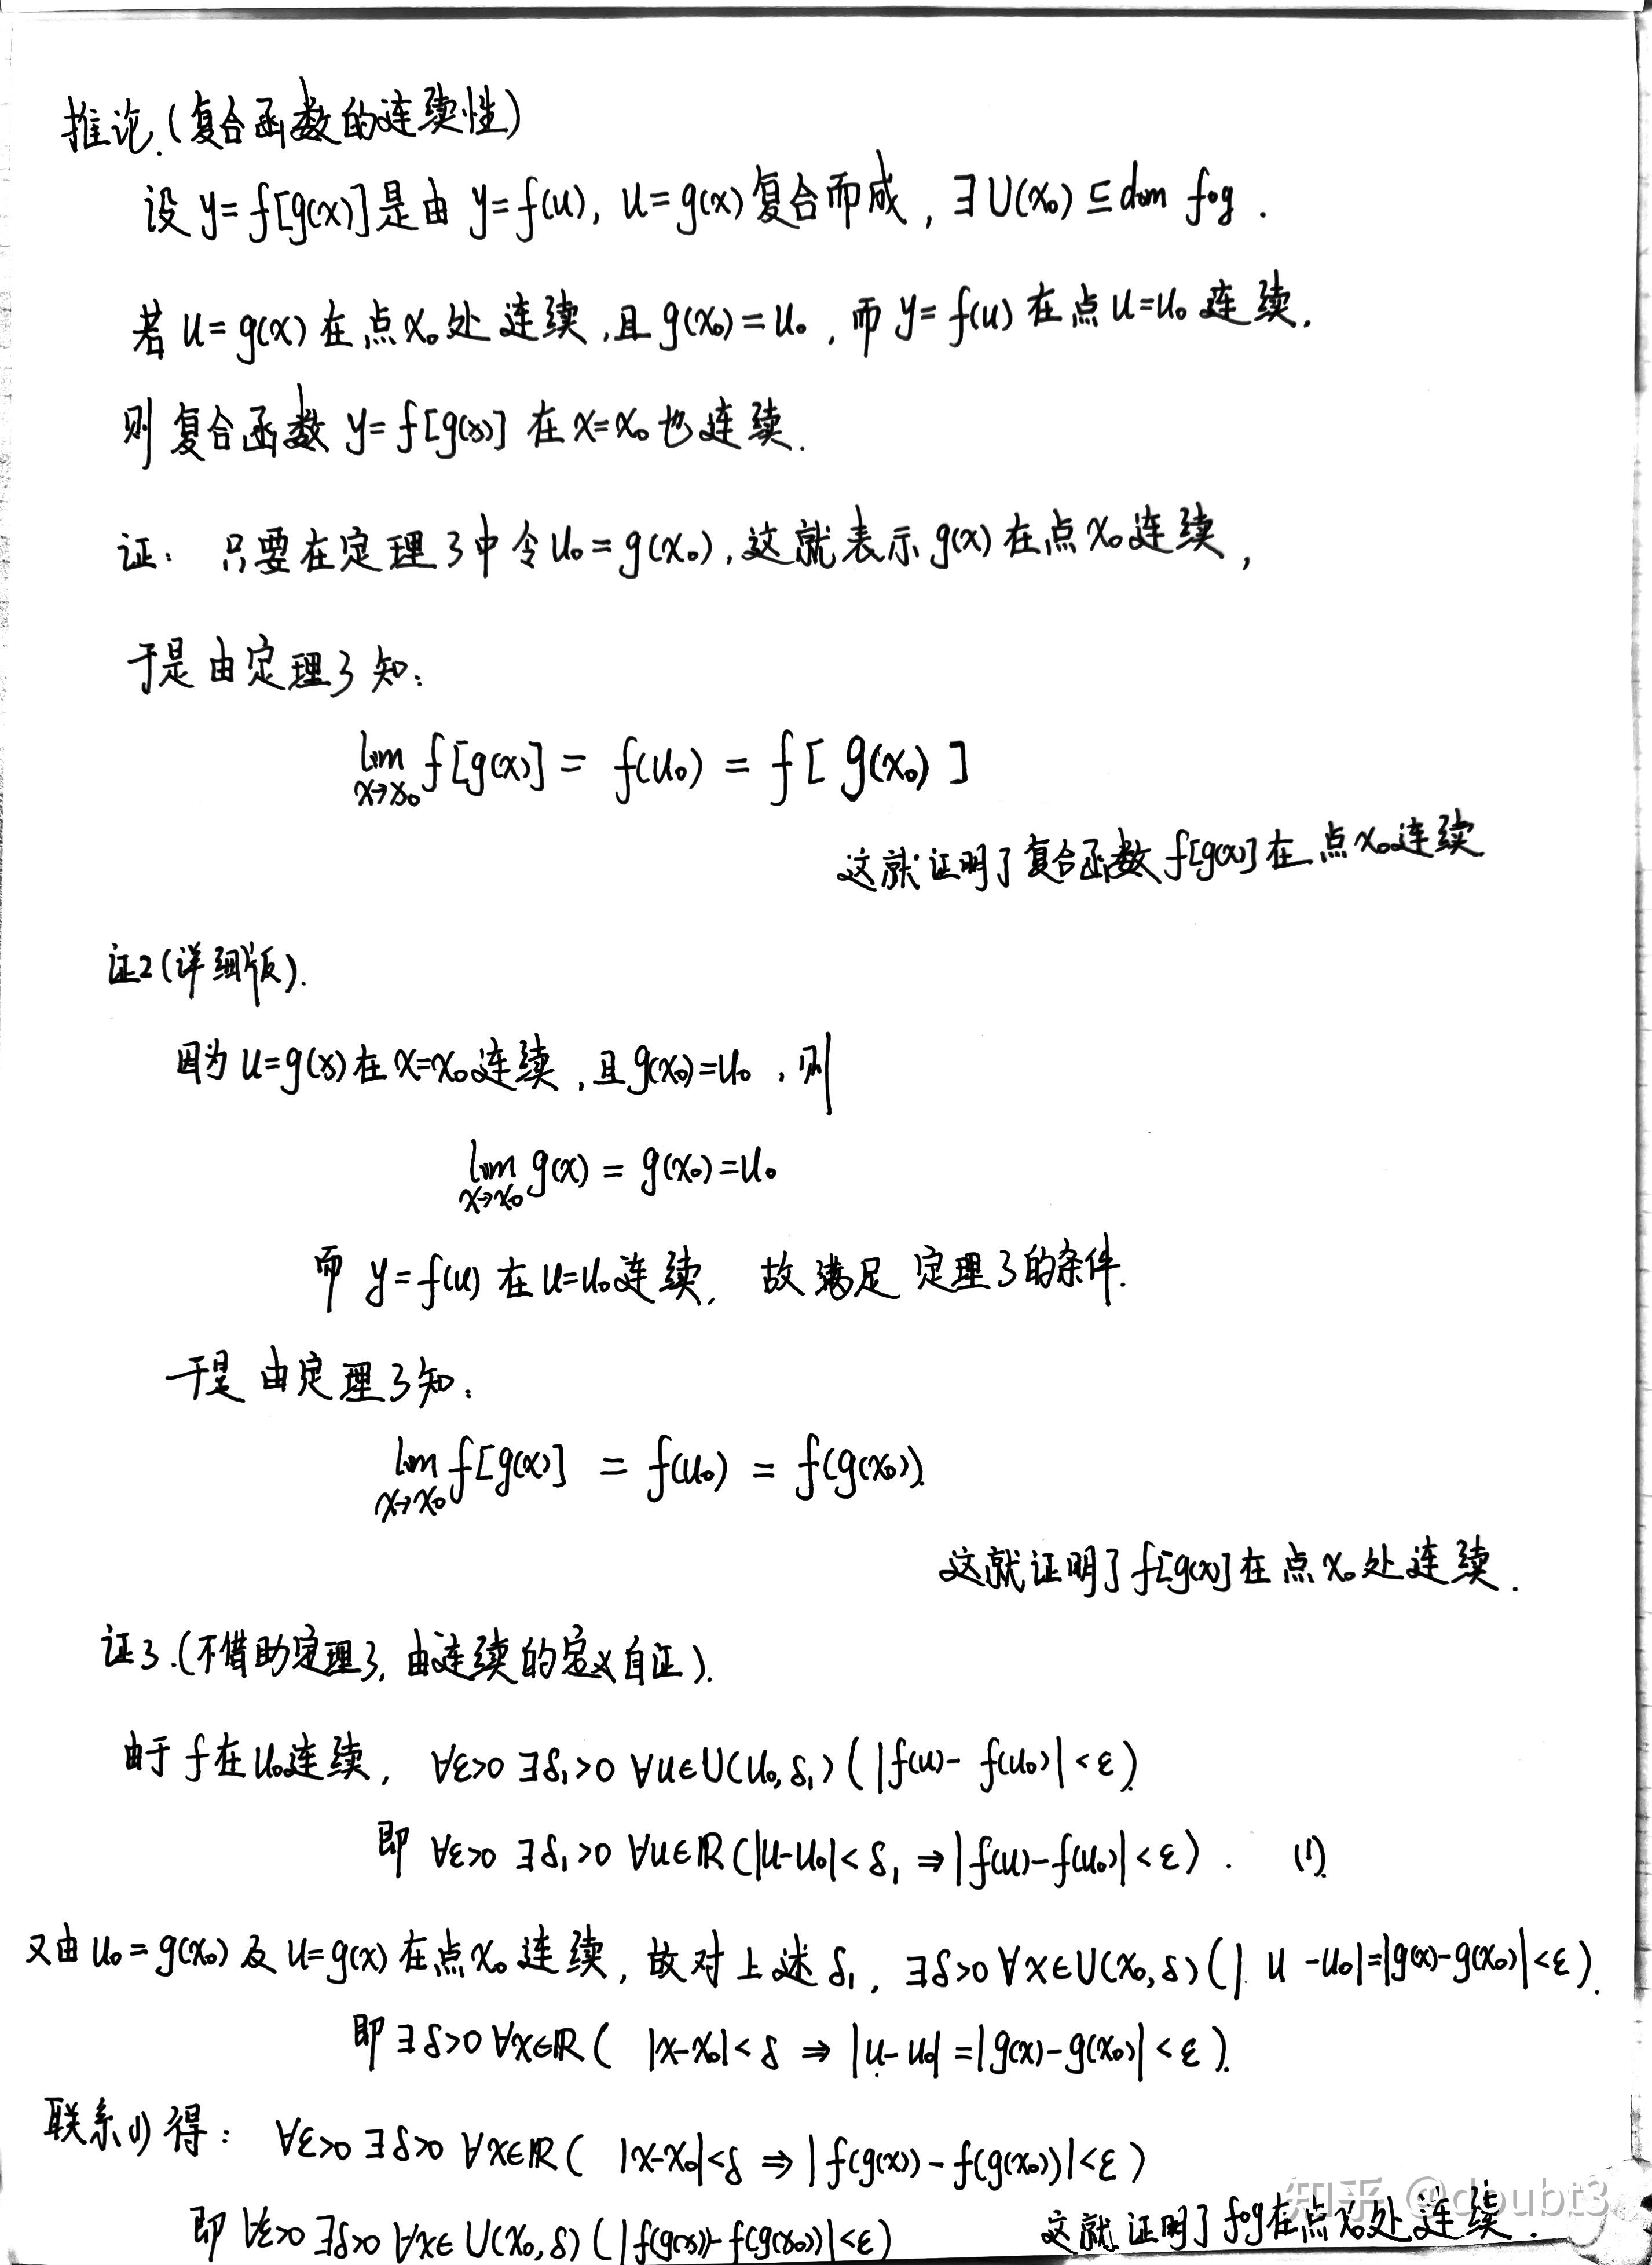 推论.(复合函数的连续性)
设 y=f[g(x)]是由 y=f(u), u=g(x)复合而成, ∃U(x₀)⊆dom f∘g.
若 u=g(x)在点x₀处连续,且g(x₀)=u₀,而 y=f(u)在点u=u₀连续.
则复合函数 y=f[g(x)] 在x=x₀也连续.
证: 只要在定理3中令u₀=g(x₀),这就表示g(x)在点x₀连续,
于是由定理3知:
lim f[g(x)] = f(u₀) = f[g(x₀)]
x→x₀
这就证明了复合函数f[g(x)]在点x₀连续
证2(详细版).
因为u=g(x)在x=x₀连续,且g(x₀)=u₀,则
lim g(x) = g(x₀)=u₀
x→x₀
而 y=f(u)在u=u₀连续, 故满足定理3的条件.
于是由定理3知:
lim f[g(x)] = f(u₀) = f(g(x₀)).
x→x₀
这就证明了f[g(x)]在点x₀处连续.
证3.(不借助定理3,由连续的定义自证).
由于f在u₀连续, ∀ε>0 ∃δ₁>0 ∀u∈U(u₀,δ₁)(|f(u)-f(u₀)|<ε)
即 ∀ε>0 ∃δ₁>0 ∀u∈ℝ(|u-u₀|<δ₁⇒|f(u)-f(u₀)|<ε). (1).
又由u₀=g(x₀)及u=g(x)在点x₀连续,故对上述δ₁,∃δ>0 ∀x∈U(x₀,δ)(|u-u₀|=|g(x)-g(x₀)|<ε).
即∃δ>0 ∀x∈ℝ(|x-x₀|<δ⇒|u-u₀|=|g(x)-g(x₀)|<ε).
联系(1)得: ∀ε>0 ∃δ>0 ∀x∈ℝ(|x-x₀|<δ⇒|f(g(x))-f(g(x₀))|<ε)
即∀ε>0 ∃δ>0 ∀x∈U(x₀,δ)(|f(g(x))-f(g(x₀))|<ε) 这就证明了f∘g在点x₀处连续.
知乎 @doubt3